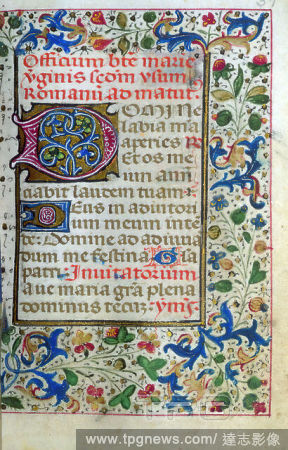 Officium bte marie
v̄ginis scdm usum
Romanū ad matut̄
DOMINe
labia mea
aperies R
Et os me
um ann̄
tiabit laudem tuam
Deus in adiutori
um meum inten
te: Domine ad adiuua
dum me festina Glīa
patri Inuitatorium
aue maria gr̄a plena
dominus tecū: ym̄s
www.tpgnews.com/ 達志影像